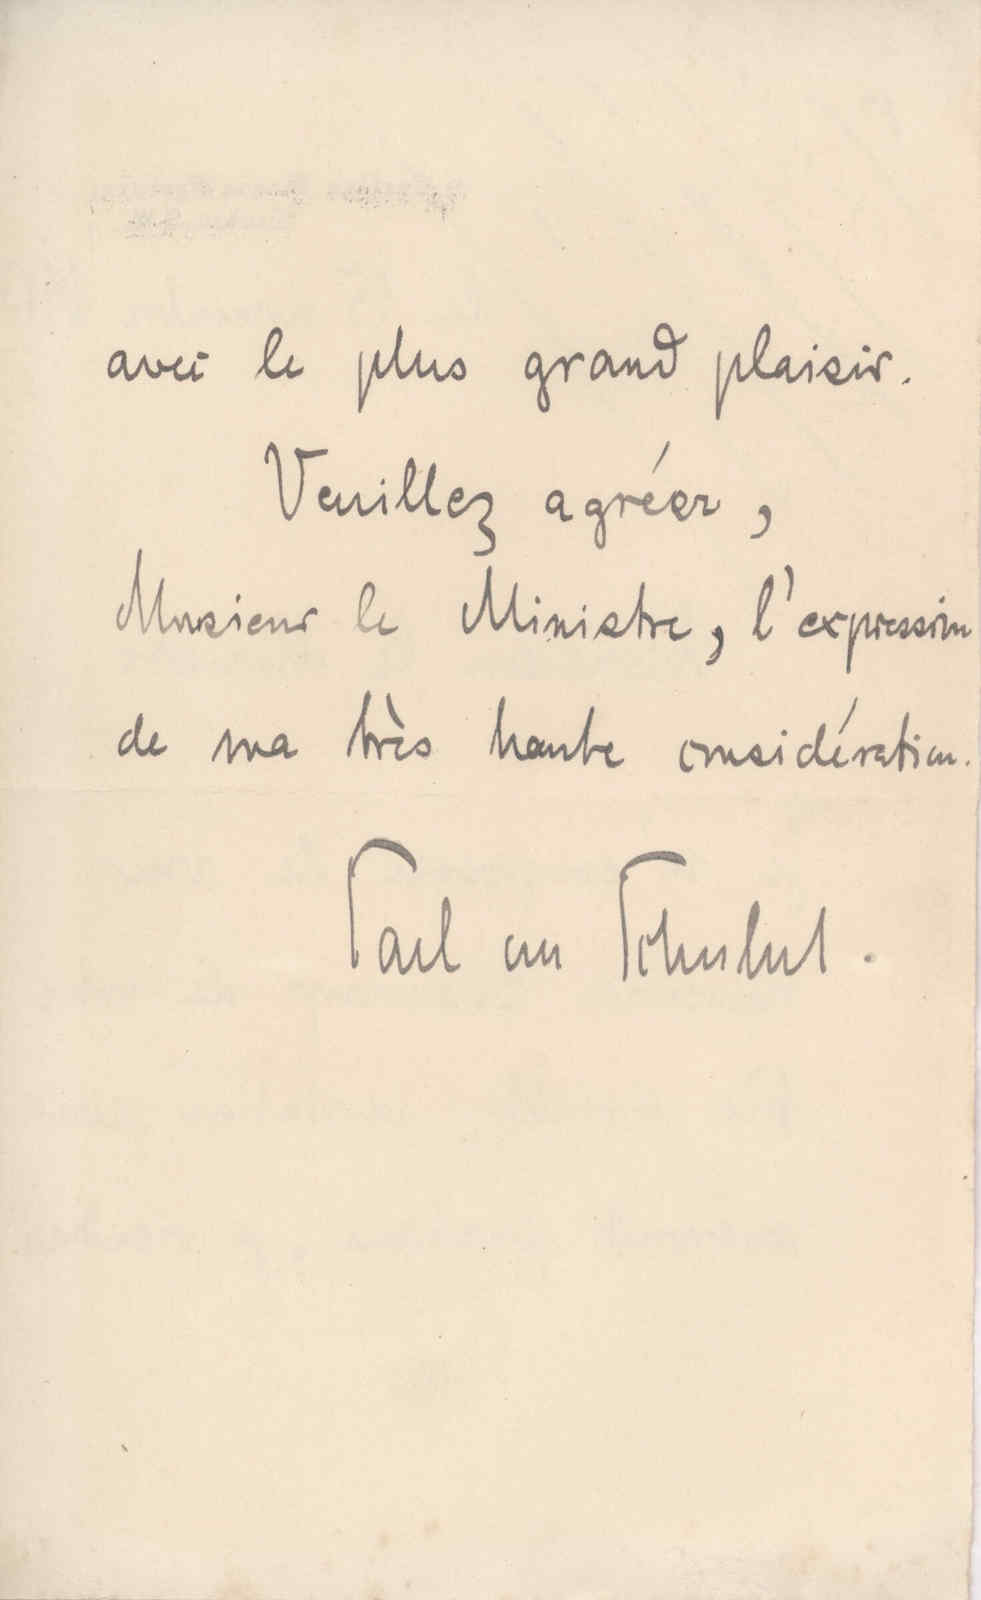 avec le plus grand plaisir.
Veuillez agréer,
Monsieur le Ministre, l'expression
de ma très haute considération.